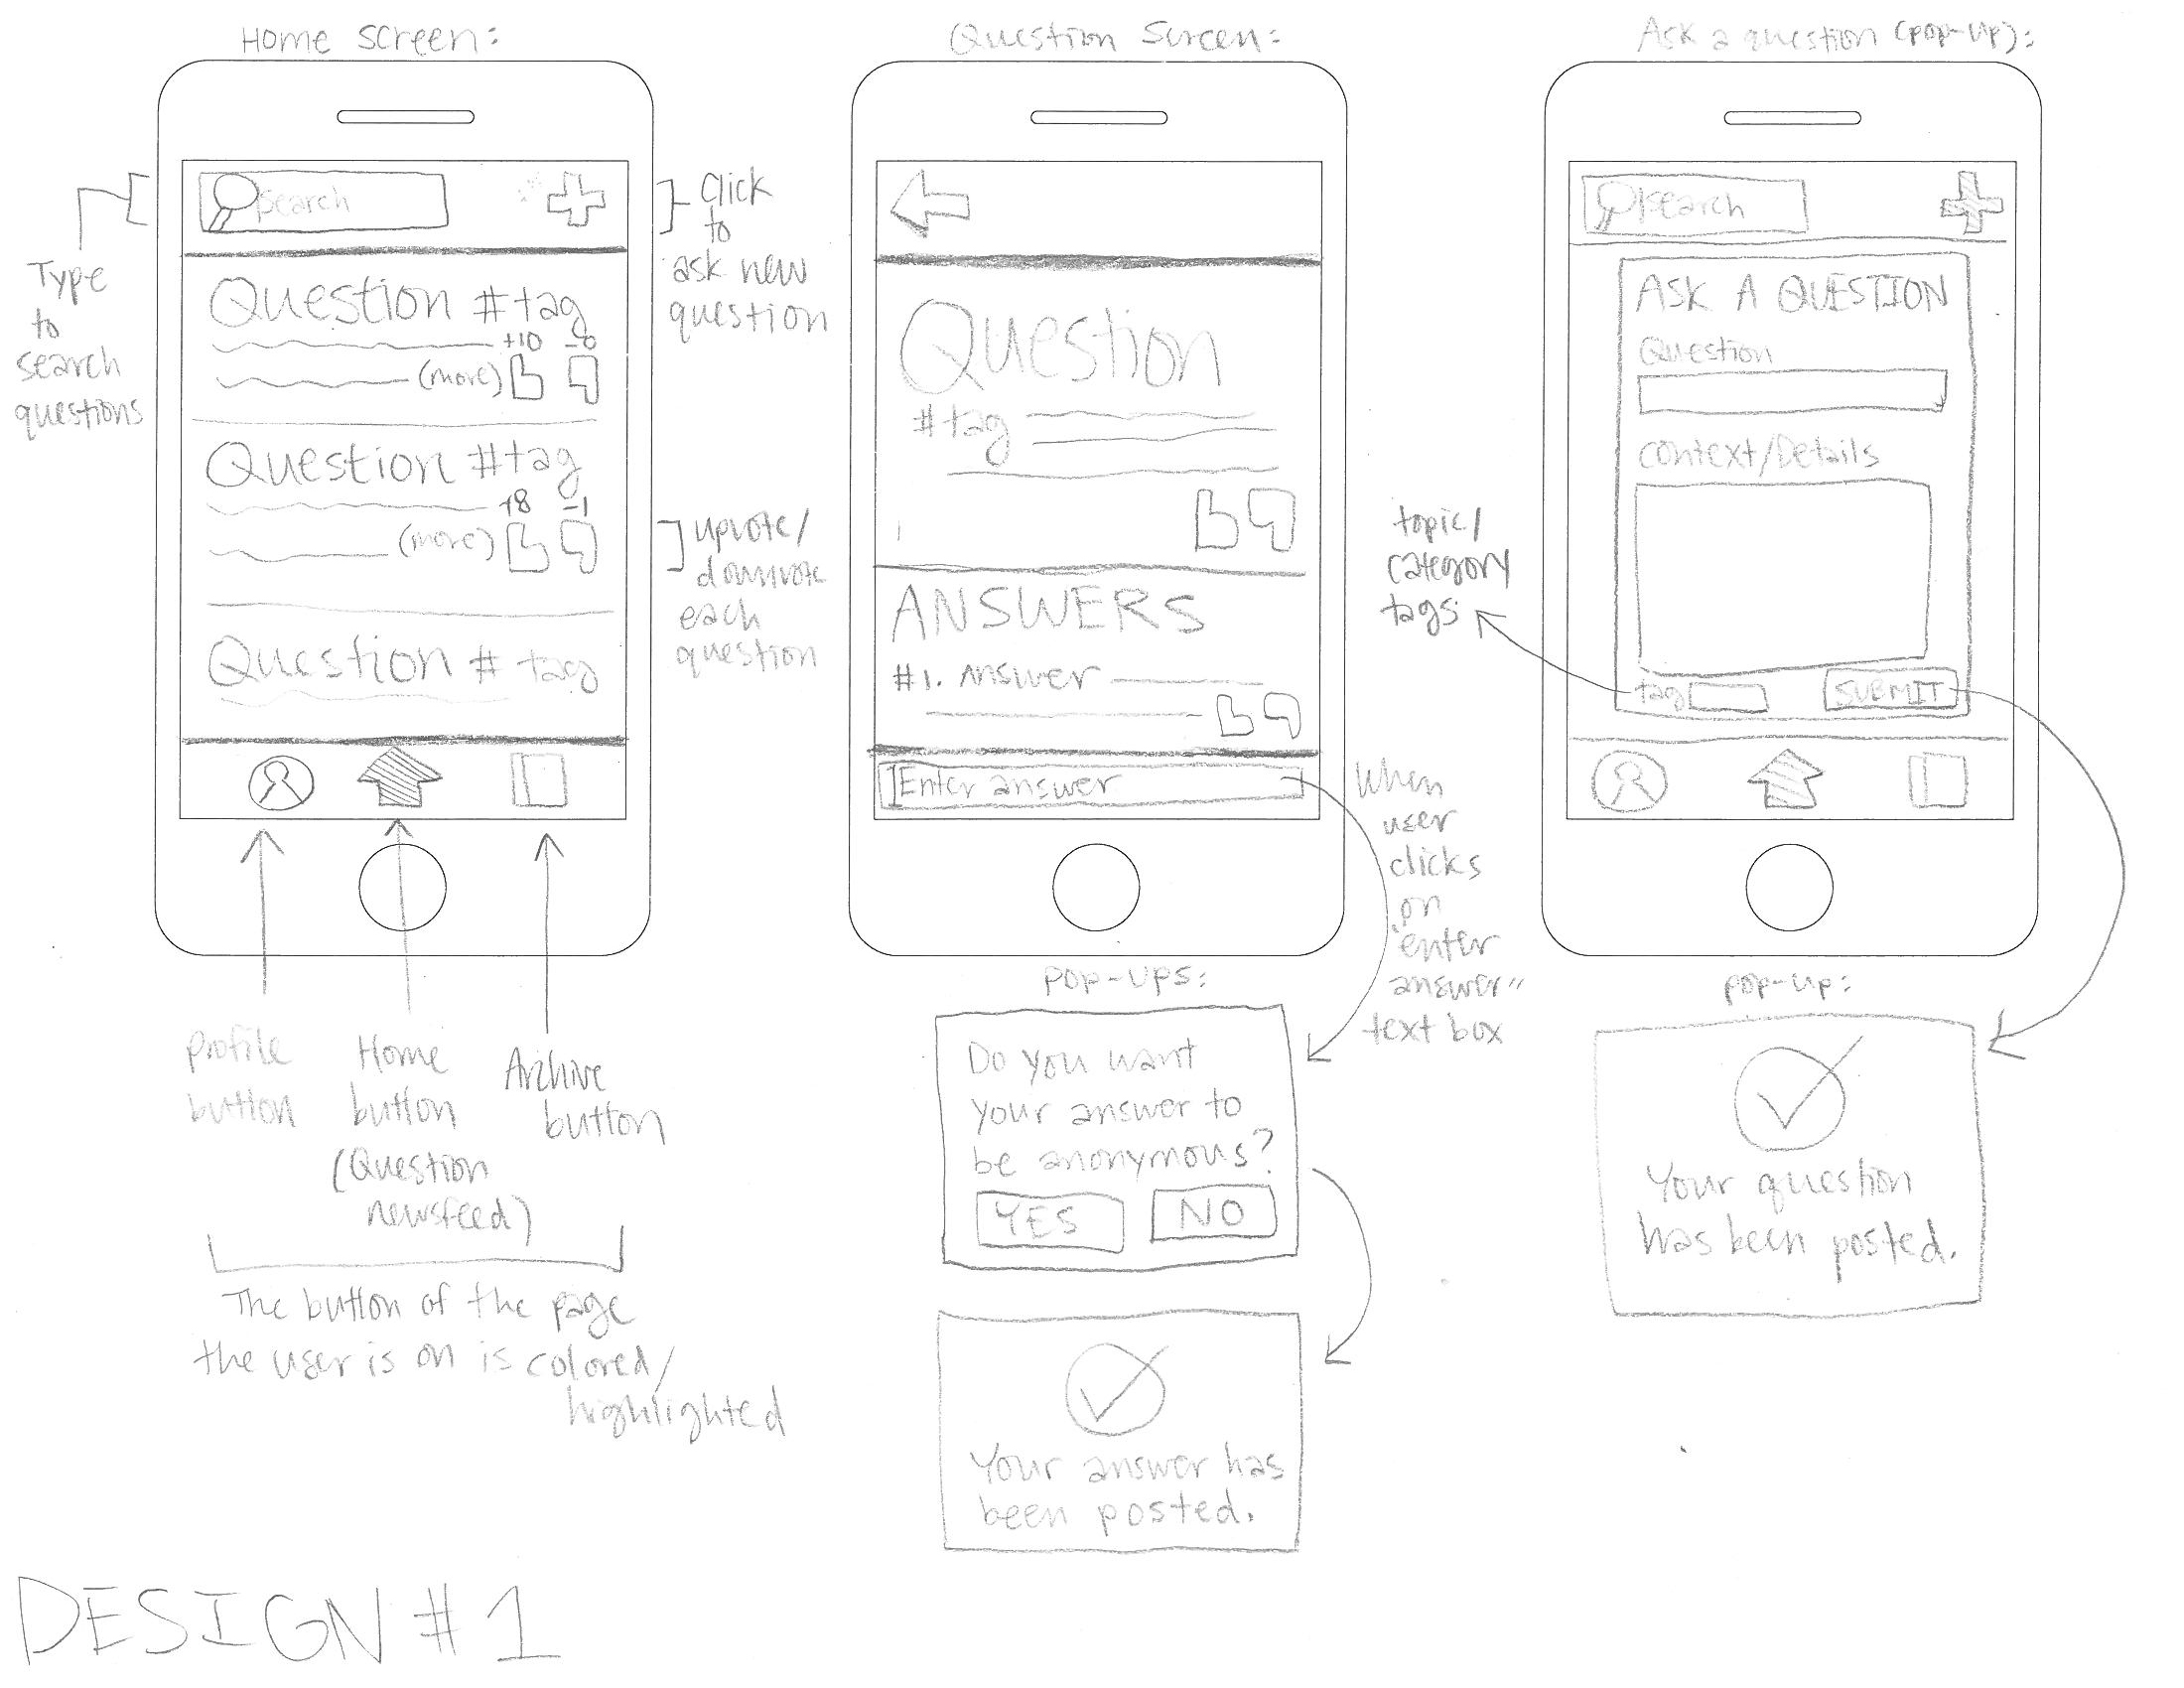 Home Screen:
Search
Type
to
search
questions
Click
to
ask new
question
Question #tag
+10 -0
(more)
Question #tag
+8 -1
(more)
upvote/
downvote
each
question
Question # tag
Profile
button
Home
button
(Question
newsfeed)
Archive
button
The button of the page
the user is on is colored/
highlighted
Question Screen:
Question
#tag
ANSWERS
#1. Answer
Enter answer
When
user
clicks
on
"enter
answer"
text box
Pop-ups:
Do you want
your answer to
be anonymous?
YES NO
Your answer has
been posted.
Ask a question (pop-up):
Search
ASK A QUESTION
Question
Context/Details
topic/
category
tags
tag SUBMIT
pop-up:
Your question
has been posted.
DESIGN #1